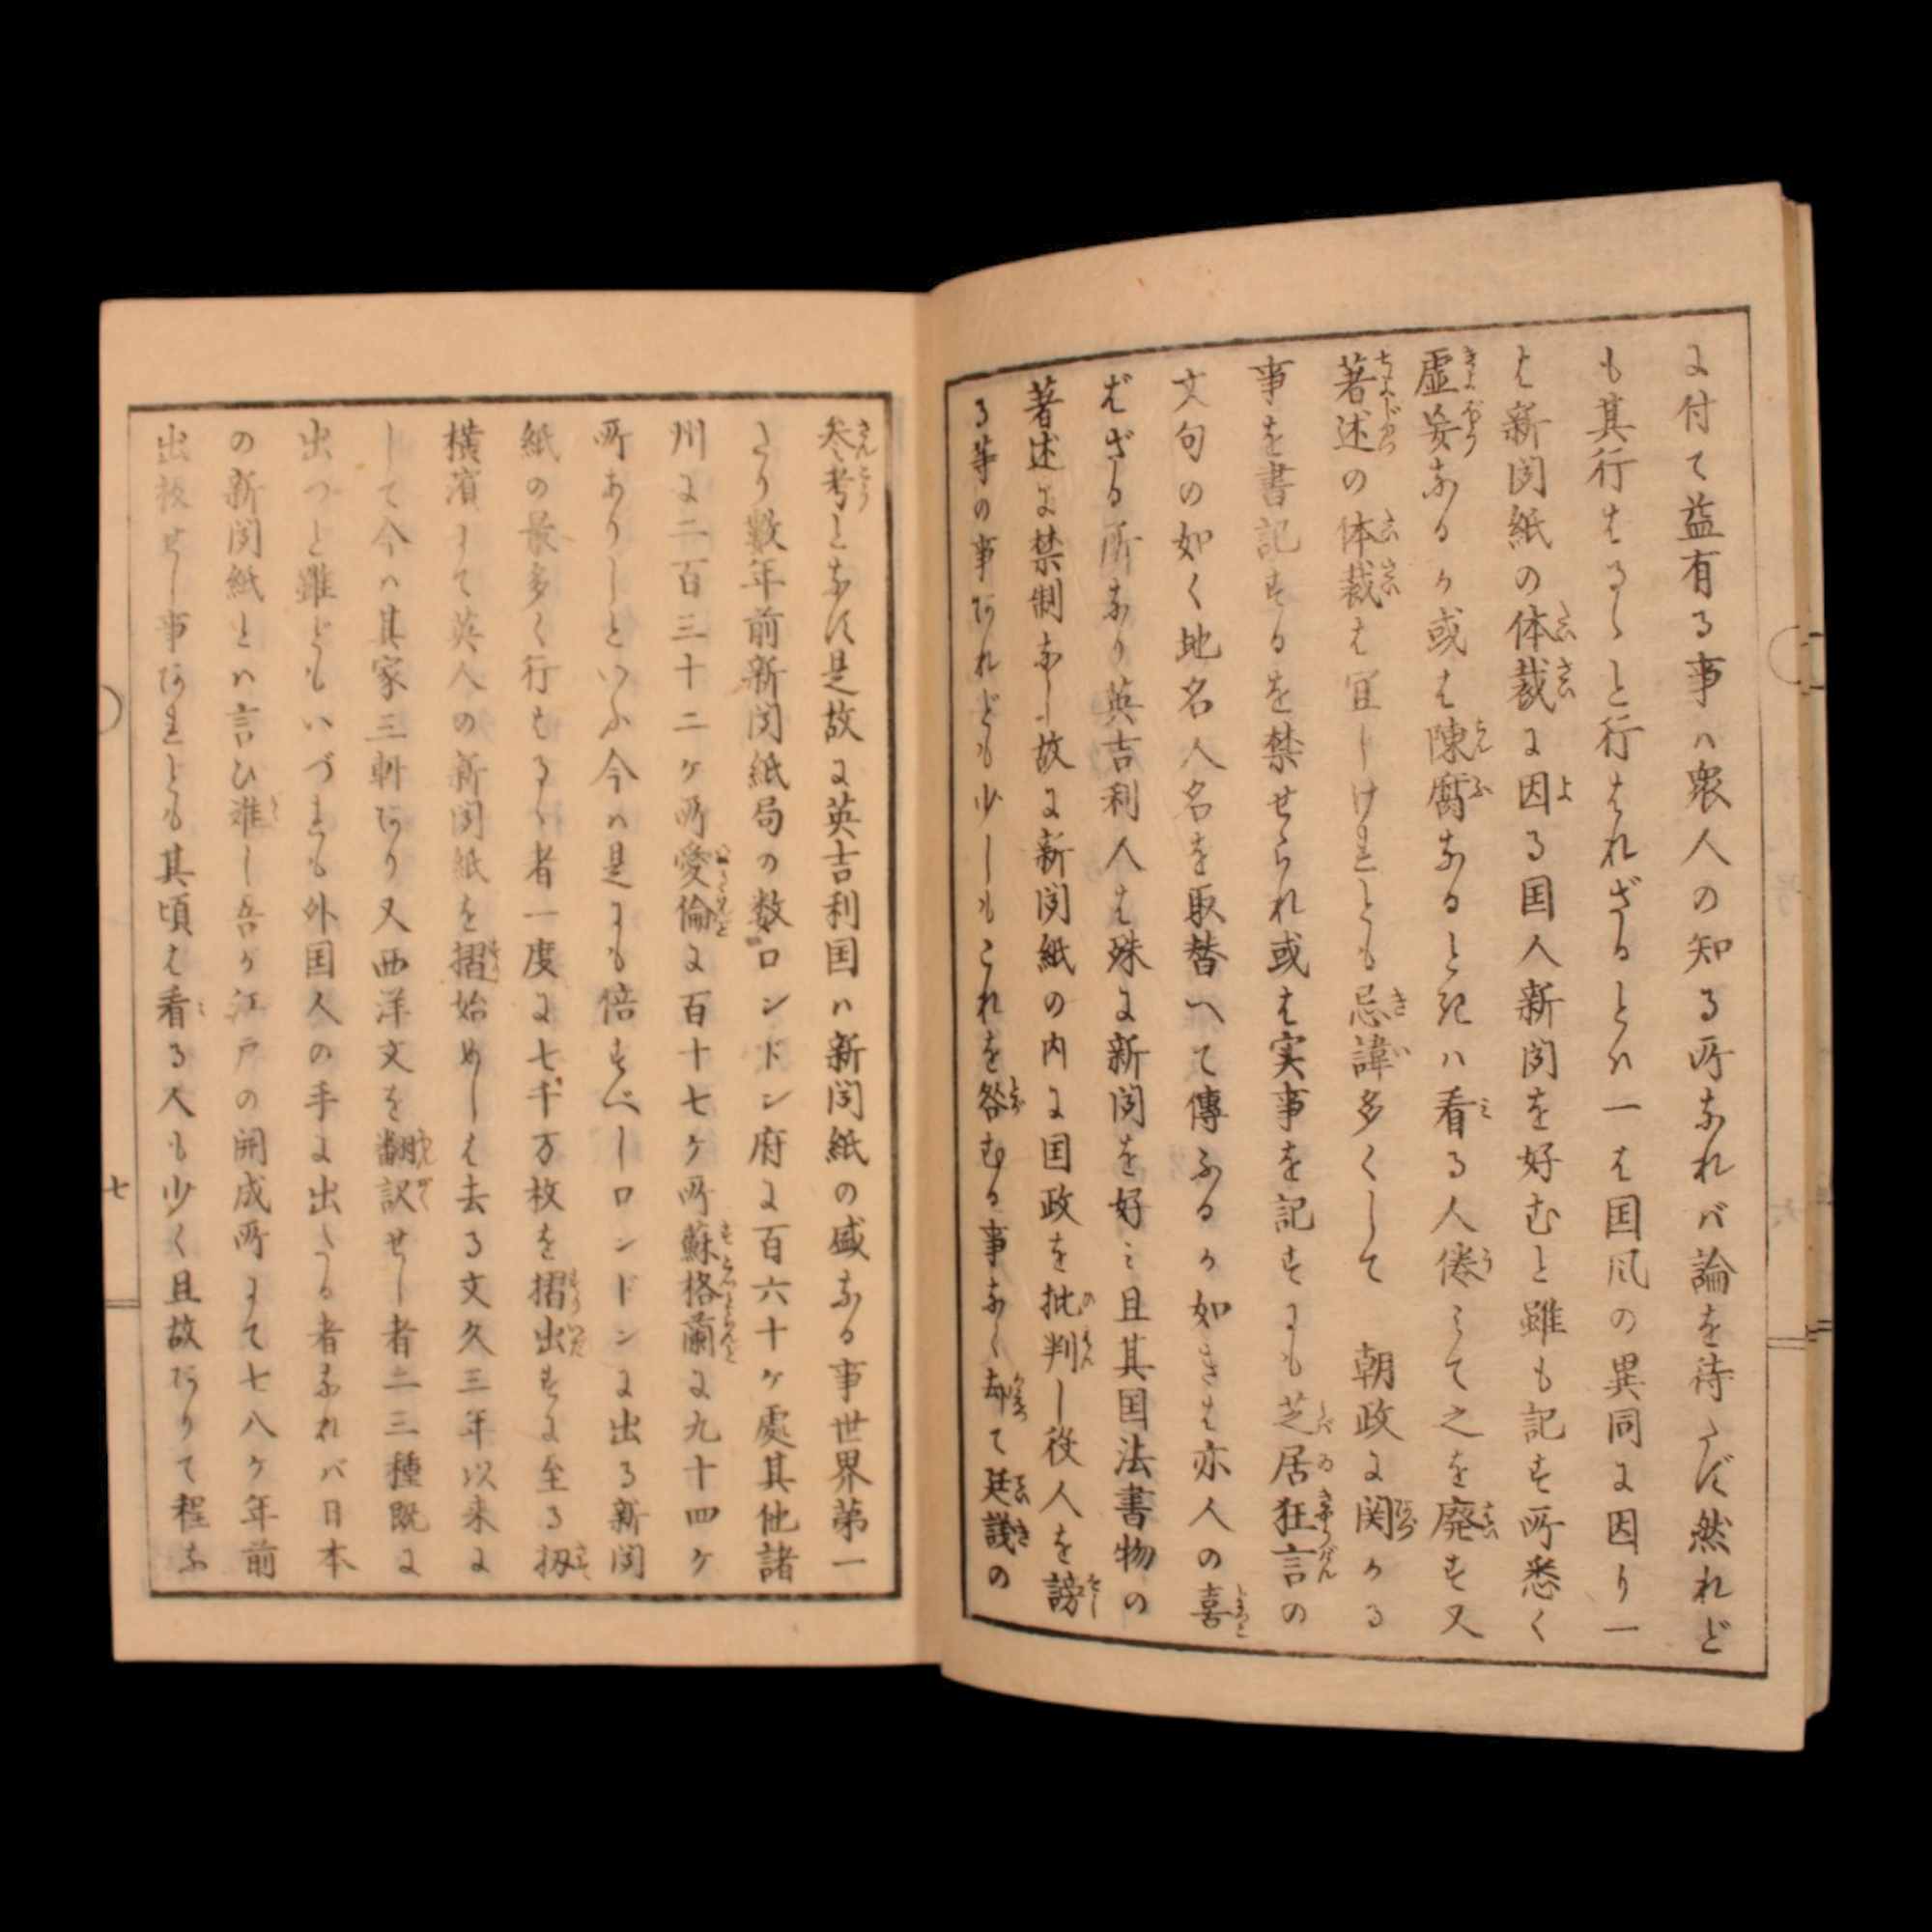 に付て益有る事ハ衆人の知る所なれバ論を待たず然れど
も其行はるゝと行はれざるとハ一は国風の異同に因り一
は新聞紙の体裁に因る国人新聞を好むと雖も記す所悉く
虚妄なるか或は陳腐なるときハ看る人倦みて之を廃す又
著述の体裁は宜しけれとも忌諱多くして 朝政に関かる
事を書記するを禁せられ或は実事を記すにも芝居狂言の
文句の如く地名人名を取替へて傳ふるか如きは亦人の喜
ばざる所なり英吉利人は殊に新聞を好み且其国法書物の
著述に禁制なし故に新聞紙の内に国政を批判し役人を謗
る等の事あれども少しもこれを咎むる事なく却て廷議の
叅考となす是故に英吉利国ハ新聞紙の盛なる事世界第一
たり數年前新聞紙局の数ロンドン府に百六十ヶ處其他諸
州に二百三十二ヶ所愛倫に百十七ヶ所蘇格蘭に九十四ヶ
所ありしといふ今ハ是にも倍すべしロンドンに出る新聞
紙の最多く行はるゝ者一度に七千万枚を摺出すに至る扨
横濱にて英人の新聞紙を摺始めしは去る文久三年以来に
して今ハ其家三軒あり又西洋文を翻訳せし者二三種既に
出つと雖どもいづれも外国人の手に出たる者なれバ日本
の新聞紙とハ言ひ難し吾か江戸の開成所にて七八ヶ年前
出板せし事あれとも其頃は看る人も少く且故ありて程な
七